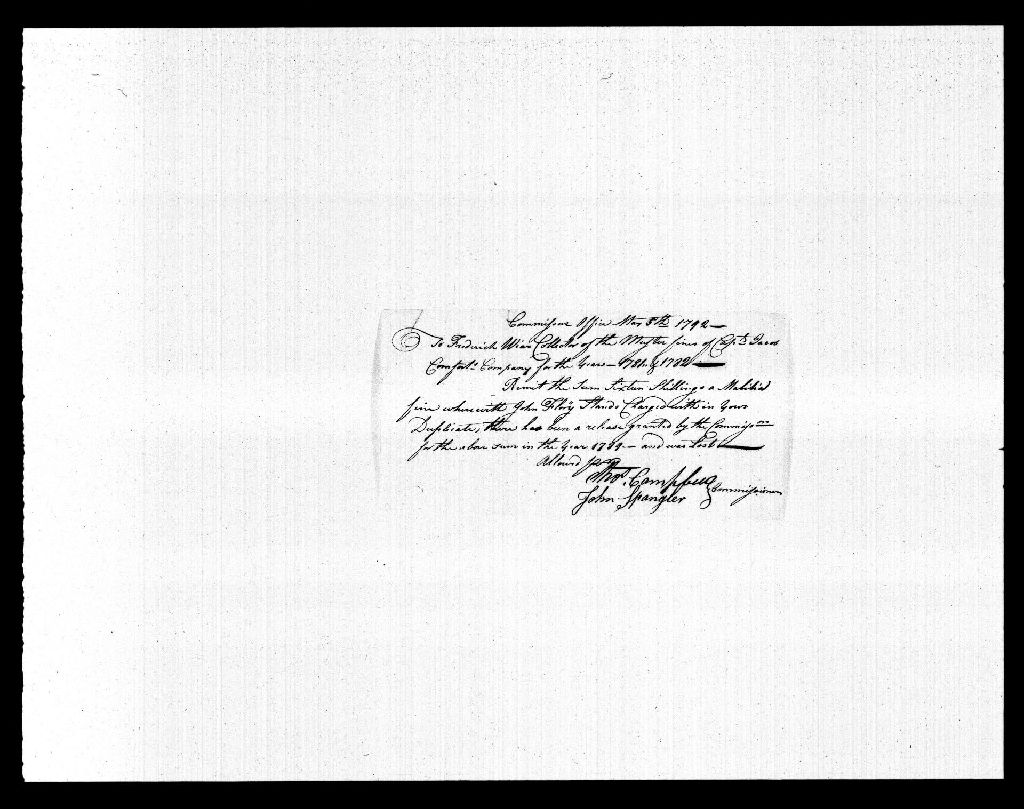 Commissioners Office May 8th 1792
To Frederick Collector of the Muster fines of Capt. Jacob
Comfort's Company for the Years 1781 & 1782
Remit the Sum Sixteen Shillings a Malitia
fine wherewith John Flory Stands Charged with in Your
Duplicate, there has been a release granted by the Commissrs
for the above sum in the Year 1784 and was Lost
Allowed pr
Thos. Campbell
John Spangler Commissioners